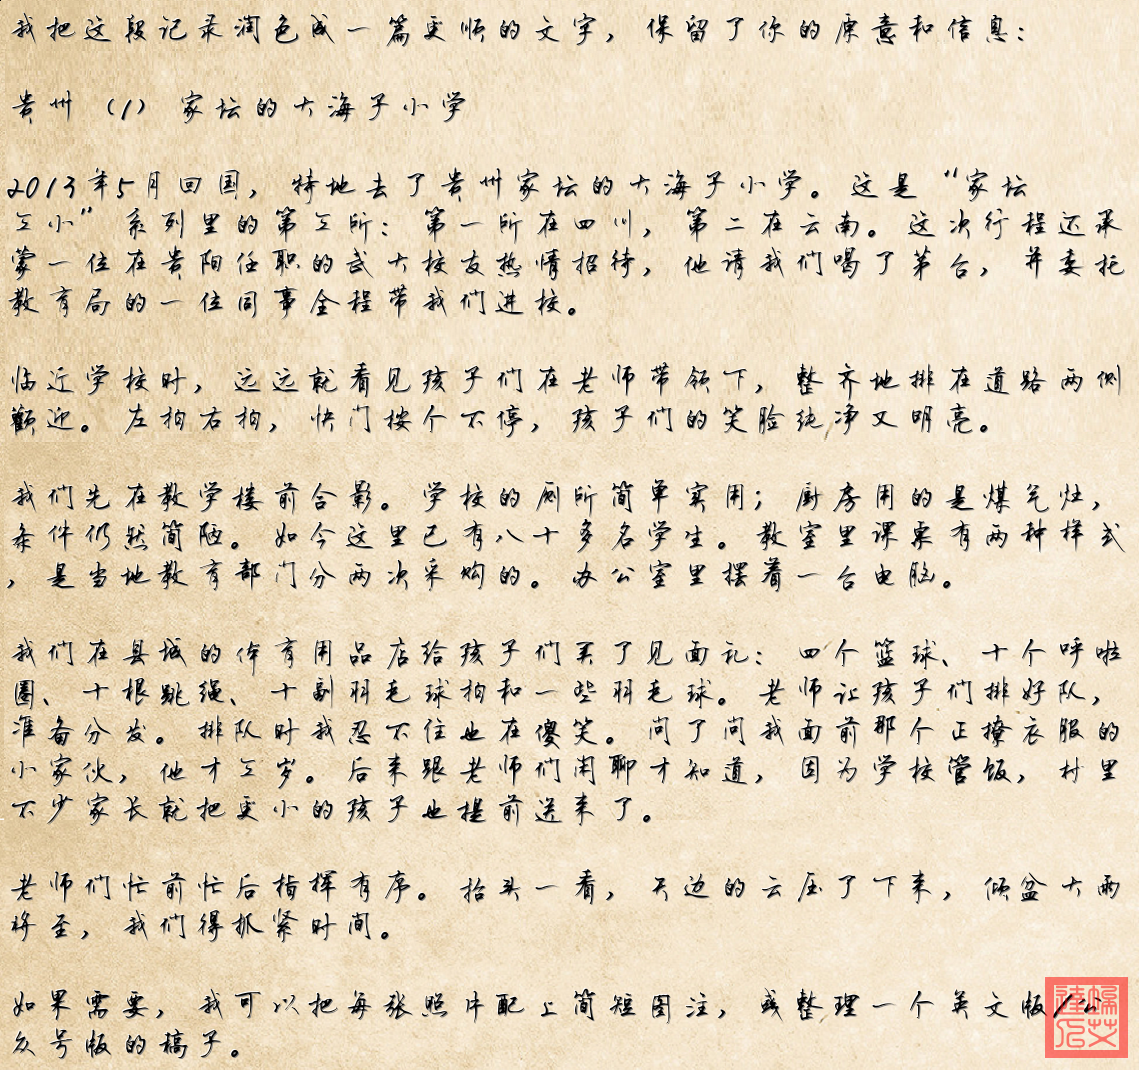 我把这段记录润色成一篇更顺的文字，保留了你的原意和信息：
贵州（1）家坛的大海子小学
2013年5月回国，特地去了贵州家坛的大海子小学。这是“家坛
三小”系列里的第三所：第一所在四川，第二在云南。这次行程还承
蒙一位在贵阳任职的武大校友热情招待，他请我们喝了茅台，并委托
教育局的一位同事全程带我们进校。
临近学校时，远远就看见孩子们在老师带领下，整齐地排在道路两侧
欢迎。左拍右拍，快门按个不停，孩子们的笑脸纯净又明亮。
我们先在教学楼前合影。学校的厕所简单实用；厨房用的是煤气灶，
条件仍然简陋。如今这里已有八十多名学生。教室里课桌有两种样式
，是当地教育部门分两次采购的。办公室里摆着一台电脑。
我们在县城的体育用品店给孩子们买了见面礼：四个篮球、十个呼啦
圈、十根跳绳、十副羽毛球拍和一些羽毛球。老师让孩子们排好队，
准备分发。排队时我忍不住也在傻笑。问了问我面前那个正撩衣服的
小家伙，他才三岁。后来跟老师们闲聊才知道，因为学校管饭，村里
不少家长就把更小的孩子也提前送来了。
老师们忙前忙后指挥有序。抬头一看，天边的云压了下来，倾盆大雨
将至，我们得抓紧时间。
如果需要，我可以把每张照片配上简短图注，或整理一个英文版/公
众号版的稿子。